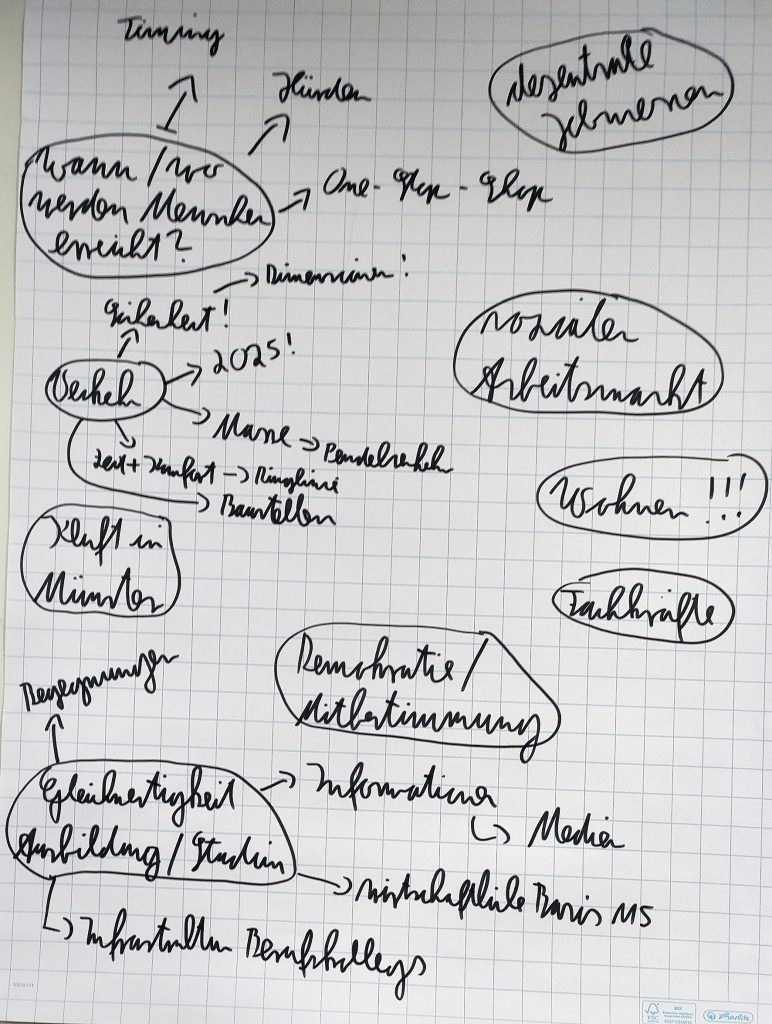 Timing
Hürden
dezentrale
Jobmessen
Wann / wo
werden Menschen
erreicht?
One-Stop-Shop
Dimensionen!
Sicherheit!
2025!
Verkehr
Masse → Pendelverkehr
Zeit + Komfort → Ringlinie
Baustellen
sozialer
Arbeitsmarkt
Wohnen !!!
Kluft in
Münster
Fachkräfte
Demokratie /
Mitbestimmung
Begegnungen
Gleichwertigkeit
Ausbildung / Studium
Informationen
Medien
wirtschaftliche Basis MS
Infrastruktur Berufskollegs
FSC